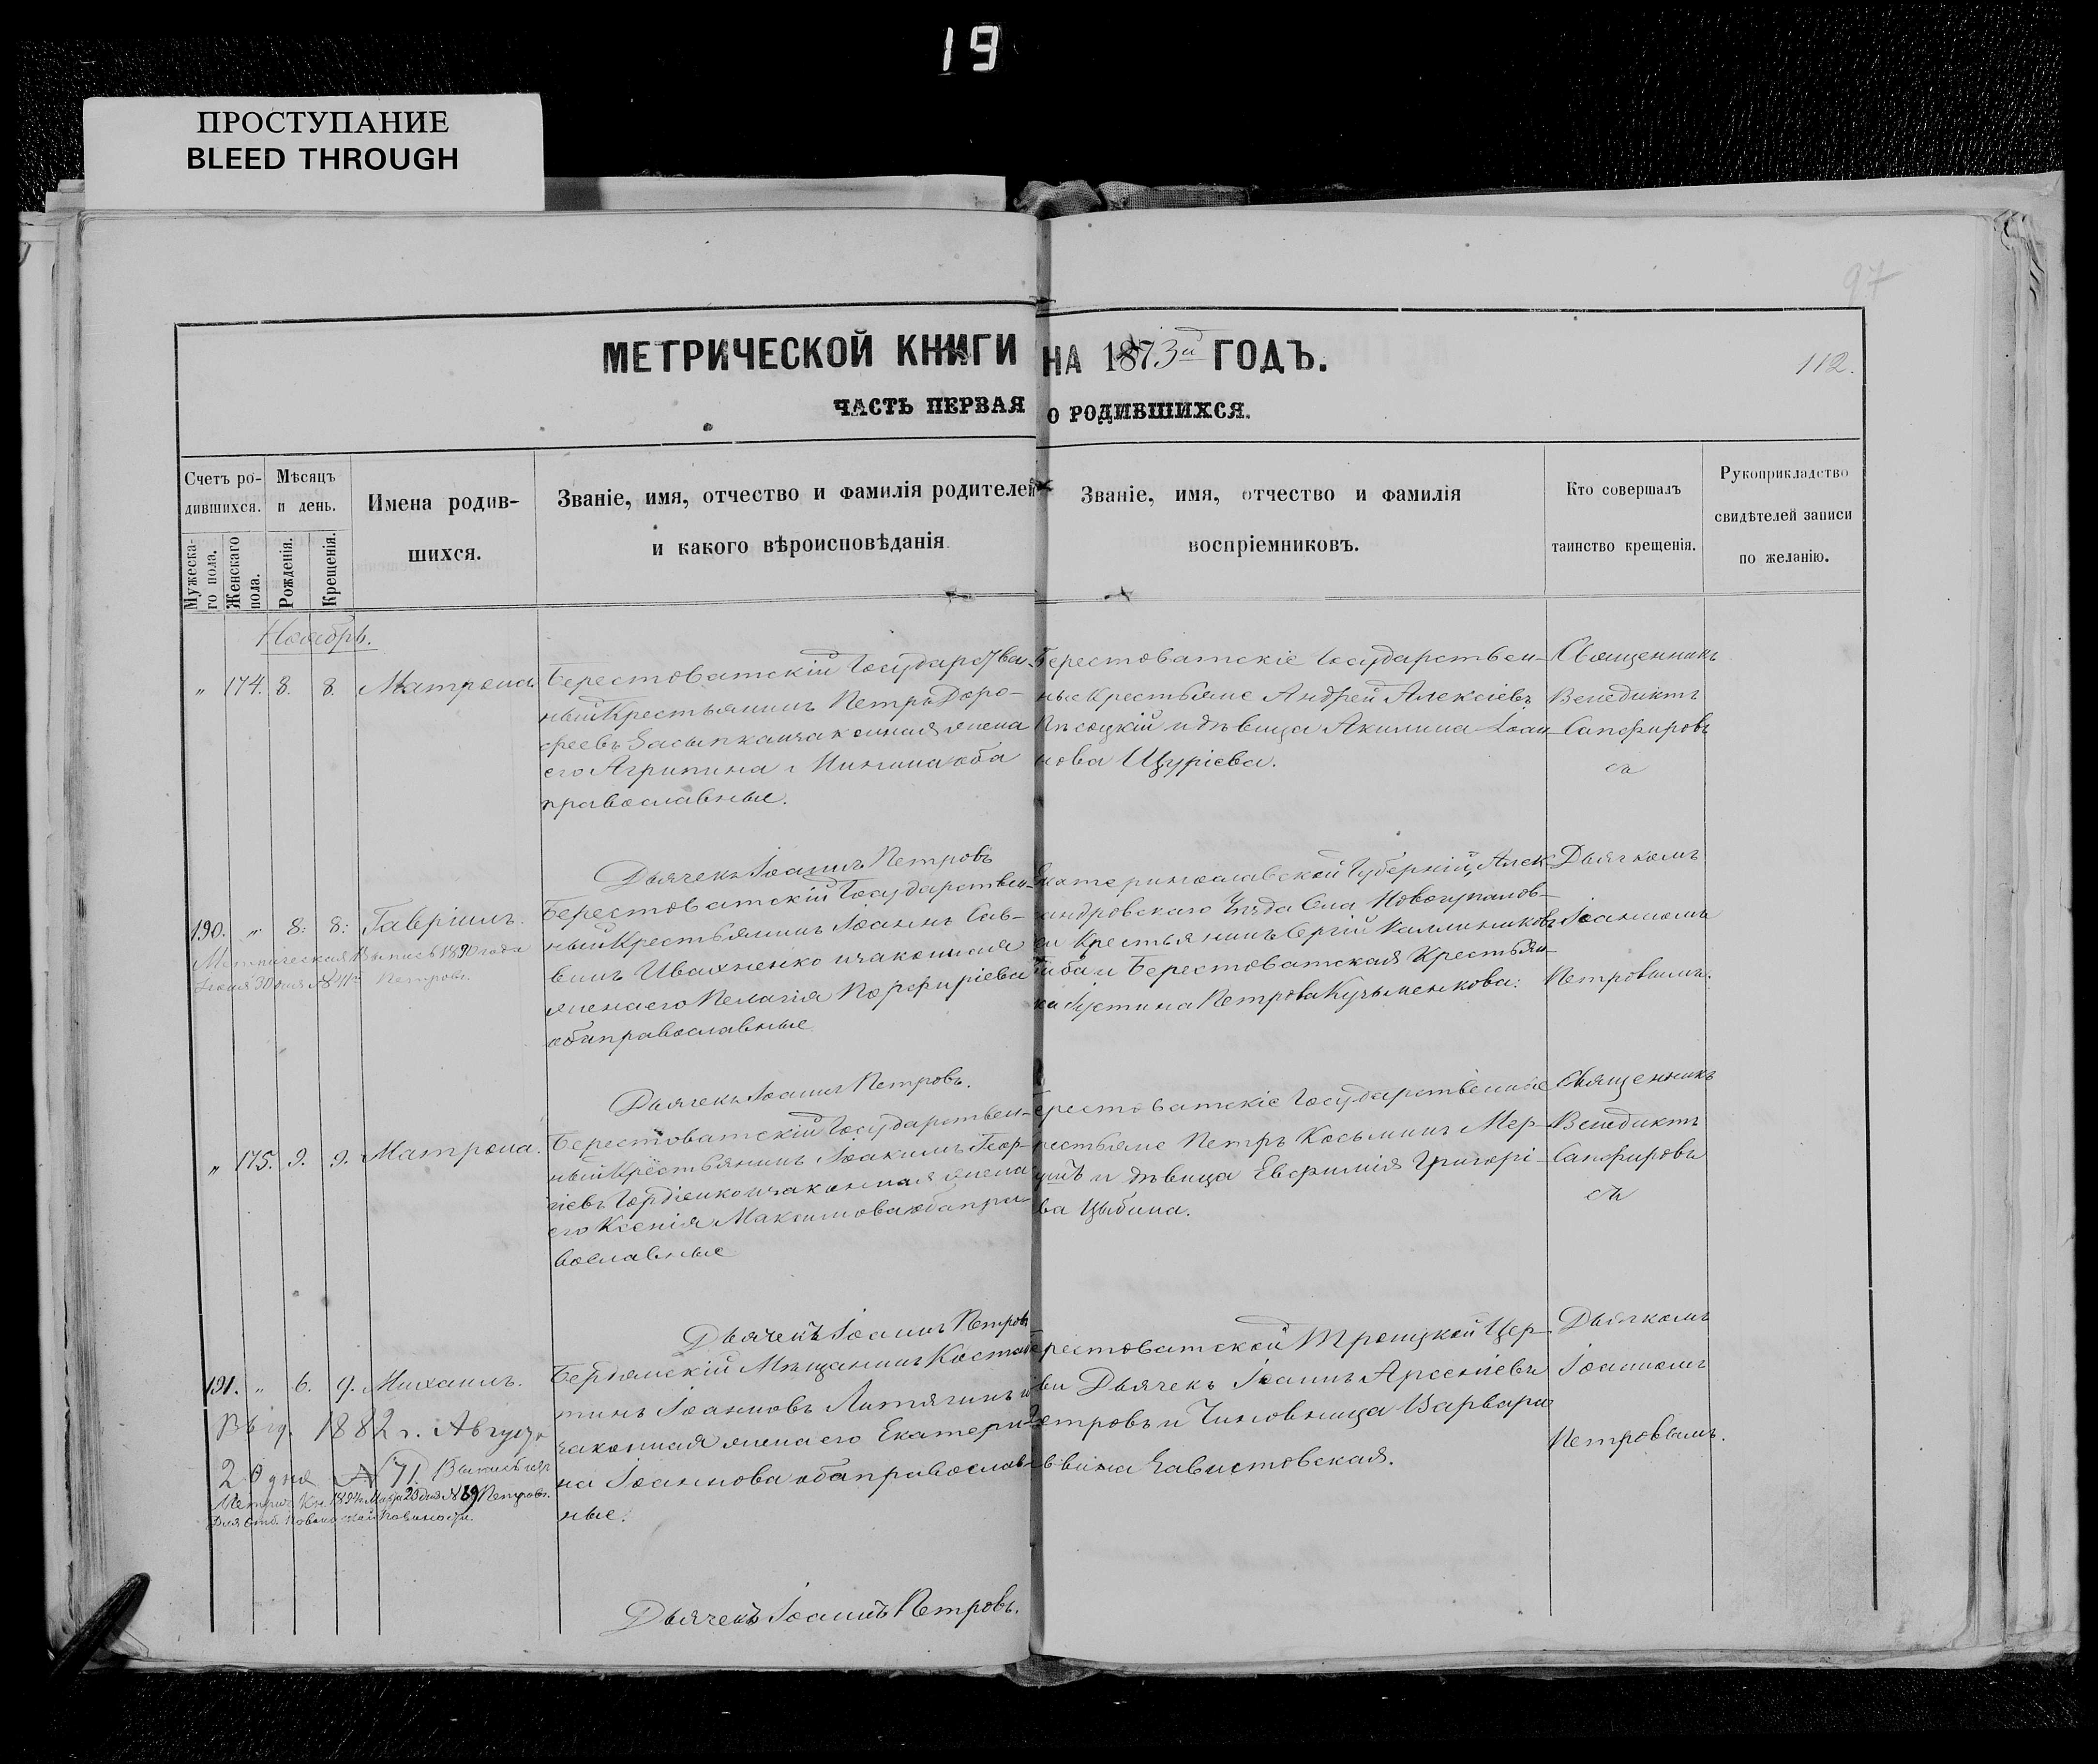 19
ПРОСТУПАНИЕ
BLEED THROUGH
97
МЕТРИЧЕСКОЙ КНИГИ НА 1873й ГОДЪ.
112.
ЧАСТЬ ПЕРВАЯ О РОДИВШИХСЯ.
Счетъ ро-
дившихся.
Мужеска-
го пола.
Женскаго
пола.
Мѣсяцъ
и день.
Рожденія.
Крещенія.
Имена родив-
шихся.
Званіе, имя, отчество и фамилія родителей
и какого вѣроисповѣданія
Званіе, имя, отчество и фамилія
воспріемниковъ.
Кто совершалъ
таинство крещенія.
Рукоприкладство
свидѣтелей записи
по желанію.
Ноябрь.
" 174. 8. 8. Матрона.
Берестоватскій Государствен-
ный Крестьянинъ Петръ Доро-
феевъ Засыпка и законная жена
его Агрипина Минина оба
православные.
Берестоватскіе Государствен-
ные Крестьяне Андрей Алексіевъ
Пѣсоцкій и дѣвица Акилина Іоан
нова Щуріева.
Священникъ
Венедиктъ
Сапфировъ
Дьячекъ Іоаннъ Петровъ
190. " 8: 8: Гавріилъ.
Метрическая Выпись 1890 года
Іюня 30 дня Петровъ.
Берестоватскій Государствен-
ный Крестьянинъ Іоаннъ Сав-
винъ Ивахненко и законная
жена его Пелагія Порфиріева
оба православные
Екатеринославской Губерніи, Алек-
андровскаго Уѣзда Села
Крестьянинъ Сергій Каллиниковъ
и Берестоватская Крестьян-
ка Іустина Петрова Кузьменкова:
Дьячкомъ
Іоанномъ
Петровымъ.
Дьячекъ Іоаннъ Петровъ.
" 175. 9. 9. Матрона.
Берестоватскій Государствен-
ный Крестьянинъ Іоакимъ Геор-
гіевъ Гордіенко и законная жена
его Ксенія Максимова оба пра-
вославные
Берестоватскіе Государственные
Крестьяне Петръ Косьминъ Мер-
и дѣвица Евфимія Григорі-
ва Цыбина.
Священникъ
Венедиктъ
Сапфировъ
Дьячекъ Іоаннъ Петровъ
191. " 6. 9. Михаилъ.
Выд. 1882 г. Августа
20 дня № 71.
Метрич. 1894 № 69 Петровъ.
Бердянскій Мѣщанинъ Констан
тинъ Іоанновъ Литягинъ и
законная жена его Екатери
на Іоаннова оба православ-
ные.
Берестоватской Троицкой Цер-
кви Дьячекъ Іоаннъ Арсеніевъ
Петровъ и Чиновница Варвара
Завистовская.
Дьячкомъ
Іоанномъ
Петровымъ.
Дьячекъ Іоаннъ Петровъ.